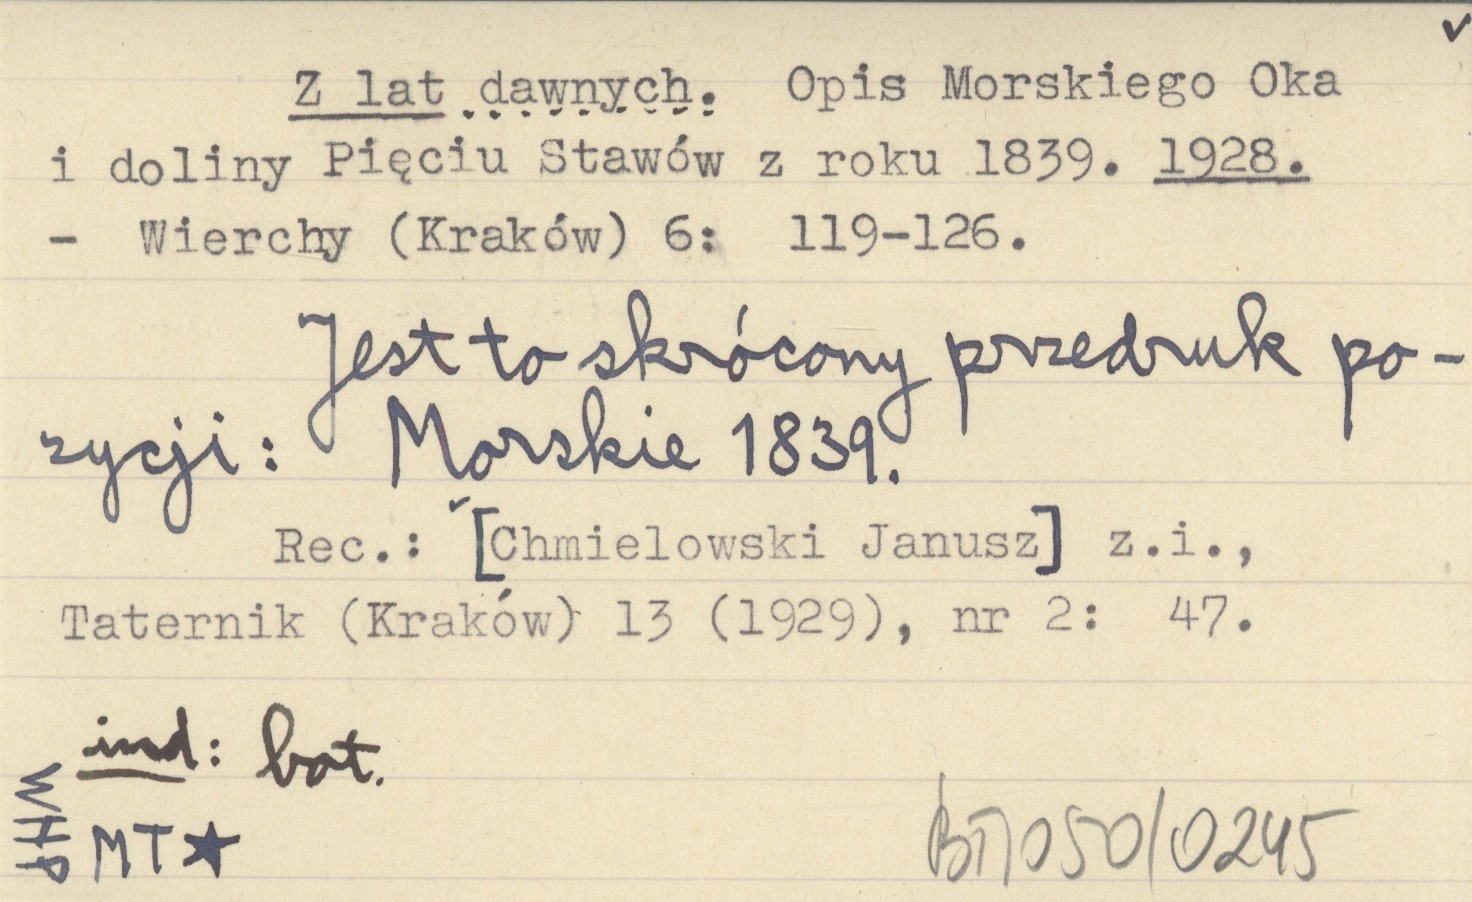 Z lat dawnych. Opis Morskiego Oka
i doliny Pięciu Stawów z roku 1839. 1928.
- Wierchy (Kraków) 6: 119-126.
Jest to skrócony przedruk po-
zycji: Morskie 1839.
Rec.: [Chmielowski Janusz] z.i.,
Taternik (Kraków) 13 (1929), nr 2: 47.
ind: bot.
WHP
MT★
BT/050/0245